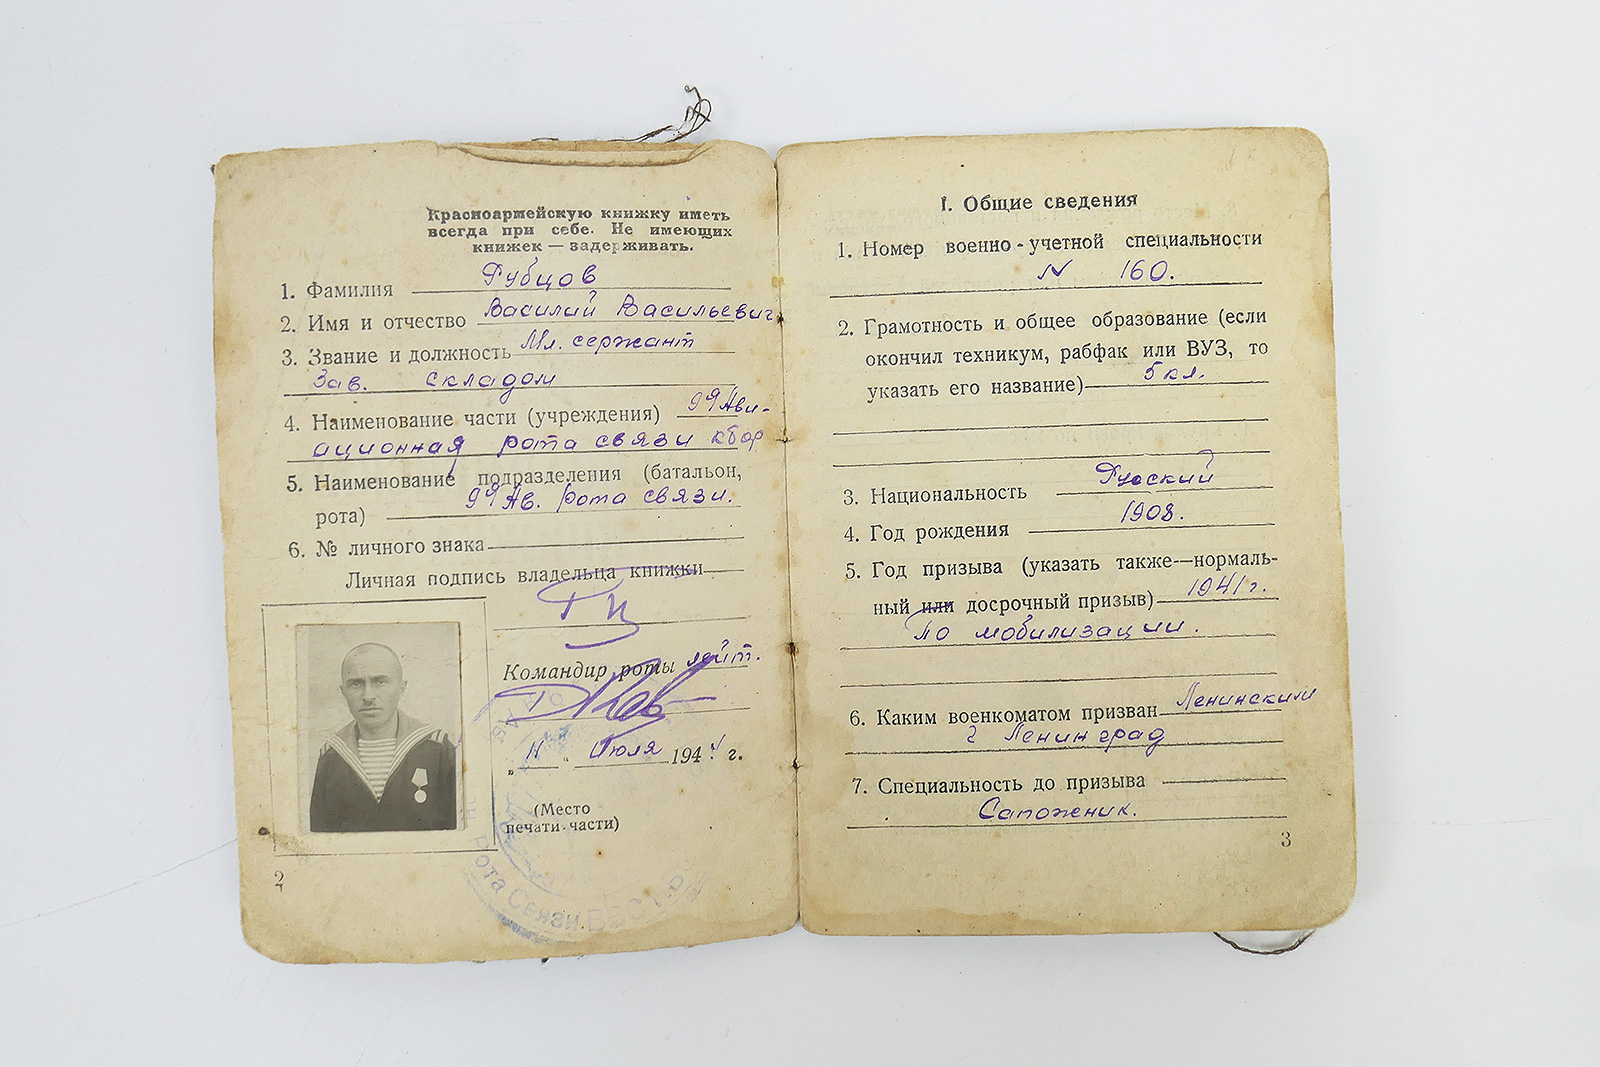 Красноармейскую книжку иметь
всегда при себе. Не имеющих
книжек — задерживать.
1. Фамилия Рубцов
2. Имя и отчество Василий Васильевич
3. Звание и должность Мл. сержант
Зав. складом
4. Наименование части (учреждения) 99 Ави-
ационная рота связи
5. Наименование подразделения (батальон,
рота) 99 Ав. рота связи.
6. № личного знака
Личная подпись владельца книжки
Командир роты лейт.
„11“ Июля 1944 г.
(Место
печати части)
Рота Связи ВВС
2
I. Общие сведения
1. Номер военно-учетной специальности
N 160.
2. Грамотность и общее образование (если
окончил техникум, рабфак или ВУЗ, то
указать его название) 5 кл.
3. Национальность Русский
4. Год рождения 1908.
5. Год призыва (указать также—нормаль-
ный или досрочный призыв) 1941 г.
По мобилизации.
6. Каким военкоматом призван Ленинским
г Ленинград
7. Специальность до призыва
Сапоженик.
3